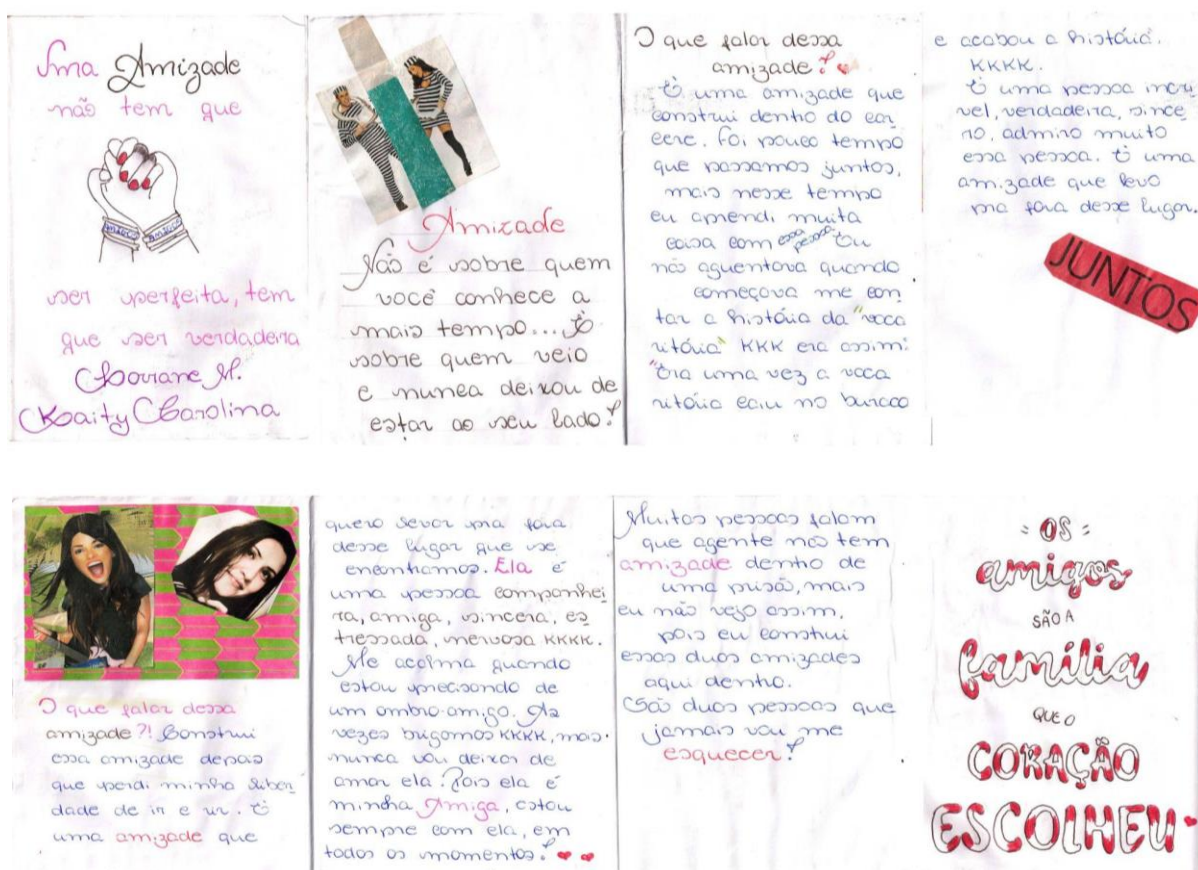 Uma Amizade
não tem que
amizade amizade
ser perfeita, tem
que ser verdadeira
Lorrane M.
Kaity Carolina
Amizade
Não é sobre quem
você conhece a
mais tempo... É
sobre quem veio
e nunca deixou de
estar ao seu lado!
O que falar dessa
amizade!
É uma amizade que
construi dentro do car
cere. Foi pouco tempo
que passamos juntos,
mais nesse tempo
eu aprendi muita
coisa com essa pessoa. Eu
não aguentava quando
começava me con
tar a história da "vaca
vitória" KKK era assim:
"Era uma vez a vaca
vitória caiu no buraco
e acabou a história.
KKKK.
É uma pessoa incrí
vel, verdadeira, since
ra, admiro muito
essa pessoa. É uma
amizade que levo
pra fora desse lugar.
JUNTOS
O que falar dessa
amizade?! Construi
essa amizade depois
que perdi minha liber
dade de ir e vir. É
uma amizade que
quero levar pra fora
desse lugar que se
encontramos. Ela é
uma pessoa companhei
ra, amiga, sincera, es
tressada, nervosa KKKK.
Me acalma quando
estou precisando de
um ombro-amigo. As
vezes brigamos KKKK, mas
nunca vou deixar de
amar ela. Pois ela é
minha Amiga, estou
sempre com ela, em
todos os momentos!
Muitas pessoas falam
que agente não tem
amizade dentro de
uma prisão, mais
eu não vejo assim,
pois eu construi
essas duas amizades
aqui dentro.
São duas pessoas que
jamais vou me
esquecer!
OS
amigos
SÃO A
família
QUE O
CORAÇÃO
ESCOLHEU